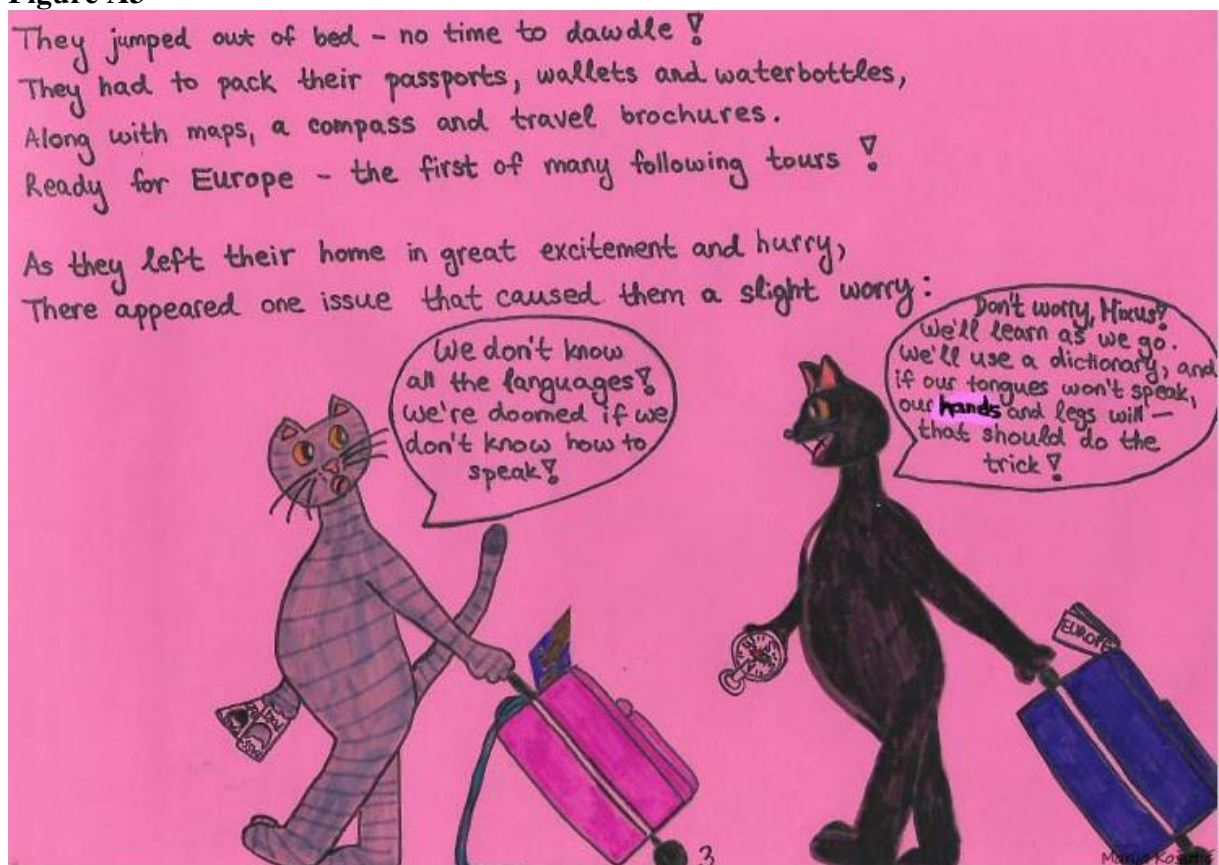 They jumped out of bed – no time to dawdle!
They had to pack their passports, wallets and waterbottles,
Along with maps, a compass and travel brochures.
Ready for Europe – the first of many following tours!
As they left their home in great excitement and hurry,
There appeared one issue that caused them a slight worry:
We don't know
all the languages!
We're doomed if we
don't know how to
speak!
Don't worry, Mixus!
We'll learn as we go.
We'll use a dictionary, and
if our tongues won't speak,
our hands and legs will –
that should do the
trick!
EUROPE
3